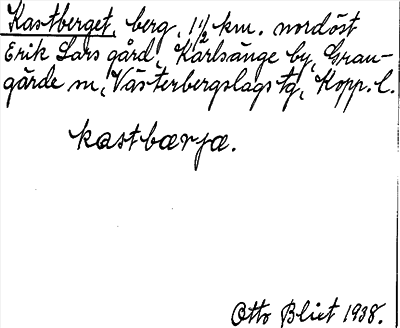 Kastberget, berg, 1½ km. nordöst
Erik Lars gård, Karlsänge by, Gran-
gärde sn, Västerbergslags tg, Kopp. l.
kastbærja.
Otto Blixt 1938.